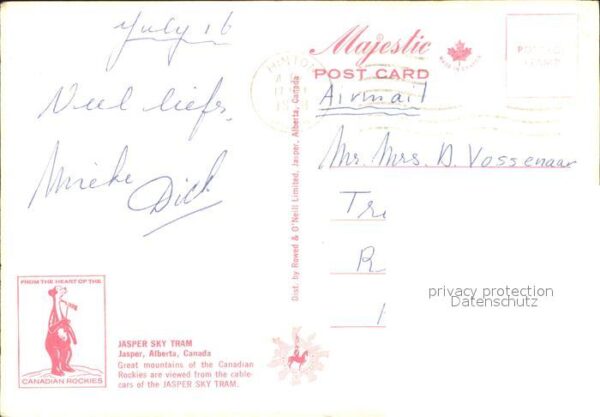 July 16
Veel liefs,
Mieke
Dick
FROM THE HEART OF THE
CANADIAN ROCKIES
JASPER SKY TRAM
Jasper, Alberta, Canada
Great mountains of the Canadian
Rockies are viewed from the cable-
cars of the JASPER SKY TRAM.
Dist. by Rowed & O'Neill Limited, Jasper, Alberta, Canada
HINTON
Majestic
MADE IN CANADA
POST CARD
Airmail
Mr. Mrs. D. Vossenaar
privacy protection
Datenschutz